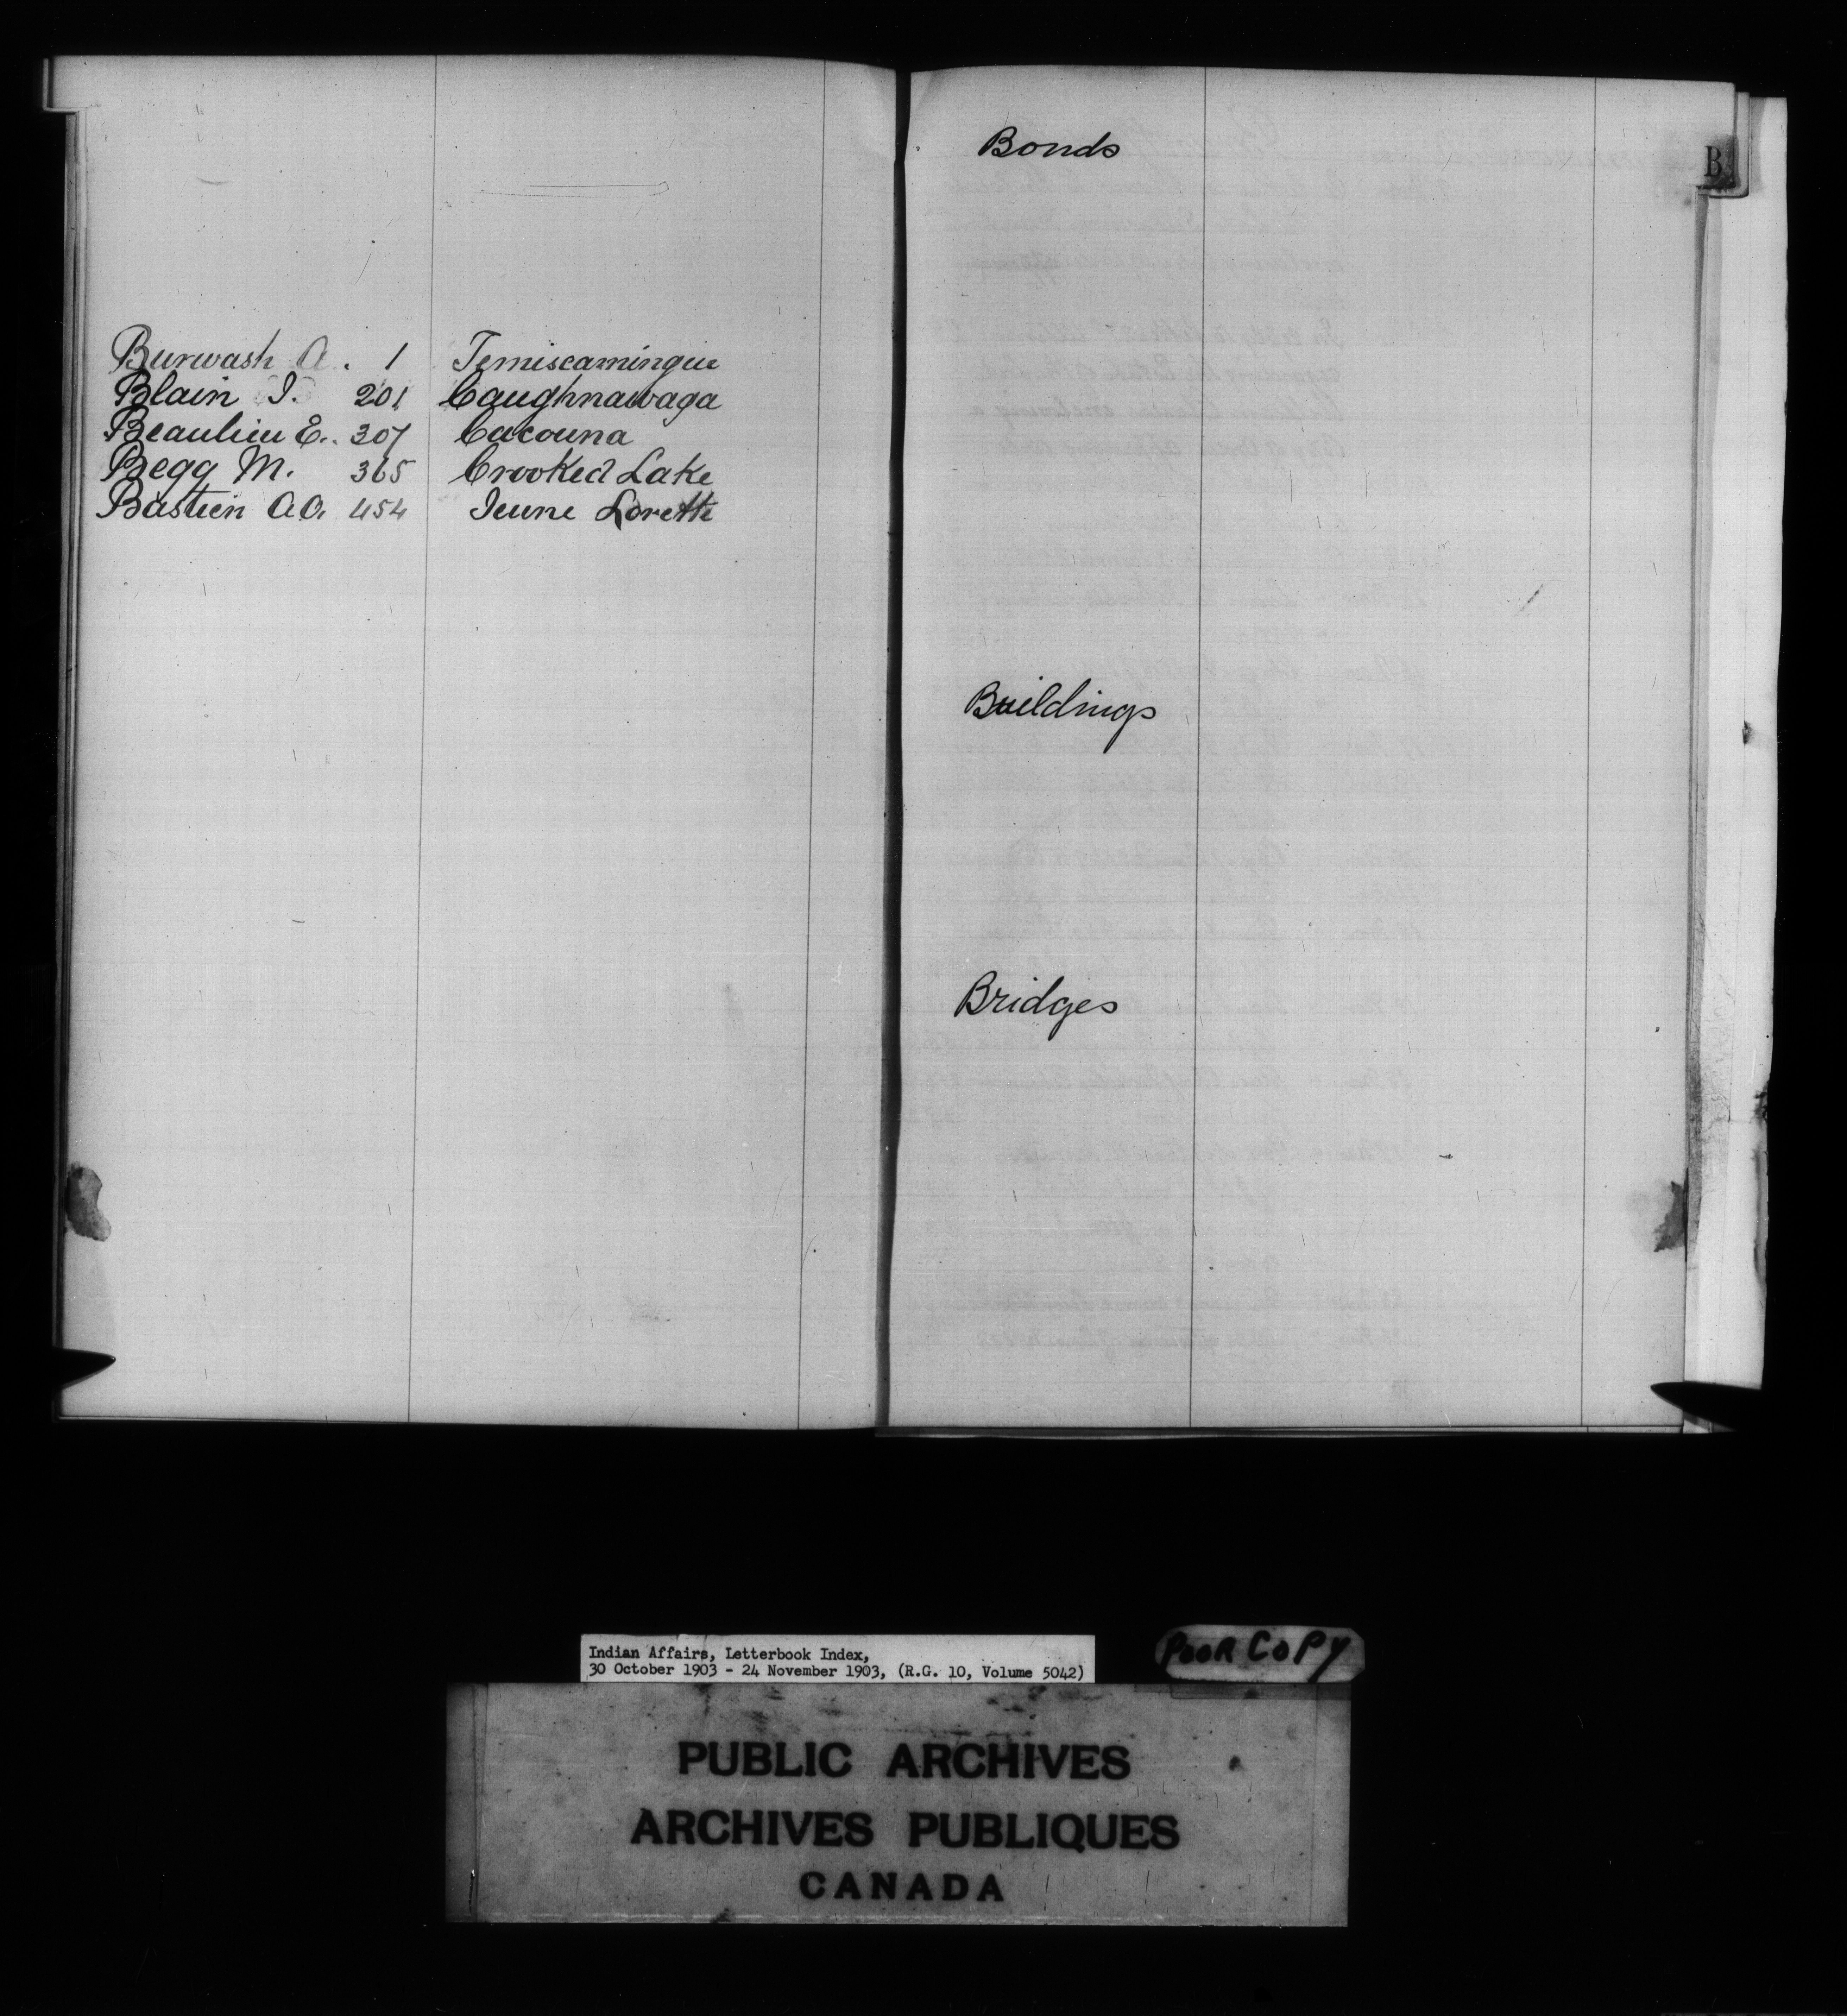 Burwash A. 1 Temiscamingue
Blain J. 201 Caughnawaga
Beaulieu E. 307 Cacouna
Begg M. 365 Crooked Lake
Bastien A.O. 454 Jeune Lorette
Bonds
B
Buildings
Bridges
Indian Affairs, Letterbook Index,
30 October 1903 - 24 November 1903, (R.G. 10, Volume 5042)
POOR COPY
PUBLIC ARCHIVES
ARCHIVES PUBLIQUES
CANADA